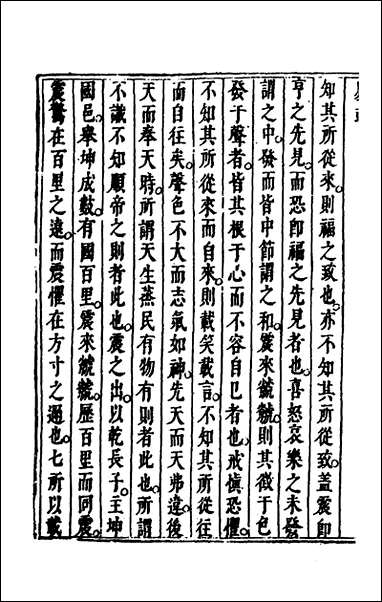 知其所從來。則福之致也。亦不知其所從致。蓋震卽
亨之先見。而恐卽福之先見者也。喜怒哀樂之未發
謂之中。發而皆中節謂之和。震來虩虩。則其徵于色
發于聲者。皆其根于心而不容自已者也。戒愼恐懼。
不知其所從來而自來。則載笑載言。不知其所從往
而自往矣。聲色不大而志氣如神。先天而天弗違。後
天而奉天時。所謂天生蒸民有物有則者此也。所謂
不識不知順帝之則者此也。震之出。以乾長子。主坤
國邑。奉坤成數。有國百里。震來虩虩。歷百里而同震。
震驚在百里之遠。而震懼在方寸之邇也。七所以載